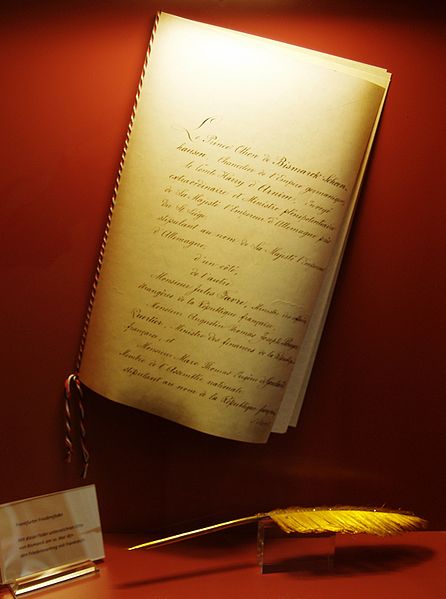 Le Prince Othon de Bismarck-Schoen-
hausen Chancelier de l'Empire germanique,
le Comte Harry d'Arnim, Envoyé
extraordinaire et Ministre plénipotentiaire
de Sa Majesté l'Empereur d'Allemagne près
du St Siège
stipulant au nom de Sa Majesté l'Empereur
d'Allemagne,
d'un côté,
de l'autre
Monsieur Jules Favre, Ministre des affaires
étrangères de la République française,
Monsieur Augustin Thomas Joseph Pouyer-
Quertier, Ministre des finances de la République
française, et
Monsieur Marc Thomas Eugène de Goulard
Membre de l'Assemblée nationale
stipulant au nom de la République française
Frankfurter Friedensfeder
Mit dieser Feder unterzeichnete Otto
von Bismarck am 10. Mai 1871
den Friedensvertrag mit Frankreich.